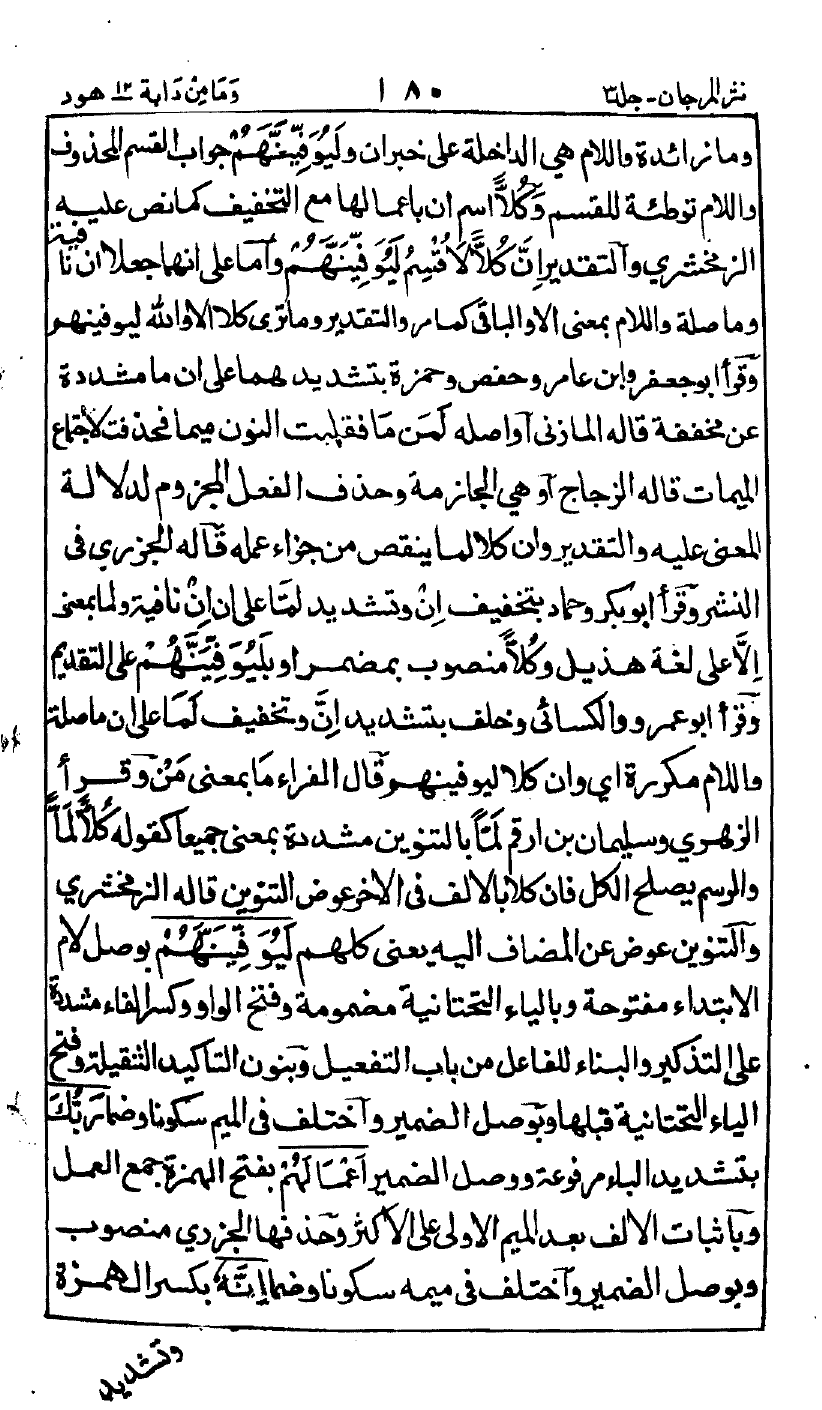 نثر المرجان - جلد ٣ ١٨٠ وَمَا مِنْ دَابة ١٢ هود
وما زائدة واللام هي الداخلة على خبران ولَيُوَفِّيَنَّهُمْ جواب القسم المحذوف
واللام توطئة للقسم وَكُلًّا اسم ان باعمالها مع التخفيف كما نص عليه
الزمخشري وآلتقدير إِنَّ كُلًّا لَأُقْسِمُ لَيُوَفِّيَنَّهُمْ وآما على انهما جعلا ان نافية
وما صلة واللام بمعنى الا والباقى كما مر والتقدير وما ترى كلا الا والله ليوفينهم
وَقرأ ابو جعفر وابن عامر وحفص وحمزة بتشديد لهما على ان ما مشددة
عن مخففة قاله المازنى آو اصله لَمَن مَا فقلبت النون ميما فحذفت لاجتماع
الميمات قاله الزجاج آو هي الجازمة وحذف الفعل المجزوم لدلالة
المعنى عليه والتقدير وان كلا لما ينقص من جزاء عمله قآله الجزري فى
النشر وقرأ ابو بكر وحماد بتخفيف إِنْ وتشديد لمّا على ان إِنْ نافية ولما بمعنى
إلّا على لغة هذيل وكُلًّا منصوب بمضمر او بِلَيُوَفِّيَنَّهُمْ على التقديم
وَقرأ ابو عمرو والكسائى وخلف بتشديد إِنَّ وتخفيف لَمَا على ان ما صلة
واللام مكررة اي وان كلا ليوفينهم وقال الفراء مَا بمعنى مَنْ وَقرأ
الزهري وسليمان بن ارقم لَمًّا بالتنوين مشددة بمعنى جميعا كقوله كُلًّا لَمًّا
والرسم يصلح الكل فان كلا بالالف فى الاخر عوض التنوين قاله الزمخشري
وآلتنوين عوض عن المضاف اليه يعنى كلهم لَيُوَفِّيَنَّهُمْ بوصل لام
الابتداء مفتوحة وبالياء التحتانية مضمومة وفتح الواو وكسر الفاء مشددة
على التذكير والبناء للفاعل من باب التفعيل وَبنون التاكيد الثقيلة وفتح
الياء التحتانية قبلها وَبوصل الضمير وآختلف فى الميم سكونا وضما رَبُّكَ
بتشديد الباء مرفوعة ووصل الضمير أَعْمَالَهُمْ بفتح الهمزة جمع العمل
وبآثبات الالف بعد الميم الاولى على الاكثر وَحذفها الجزري منصوب
وبوصل الضمير وآختلف فى ميمه سكونا وضما إِنَّهُ بكسر الهمزة
وتشديد